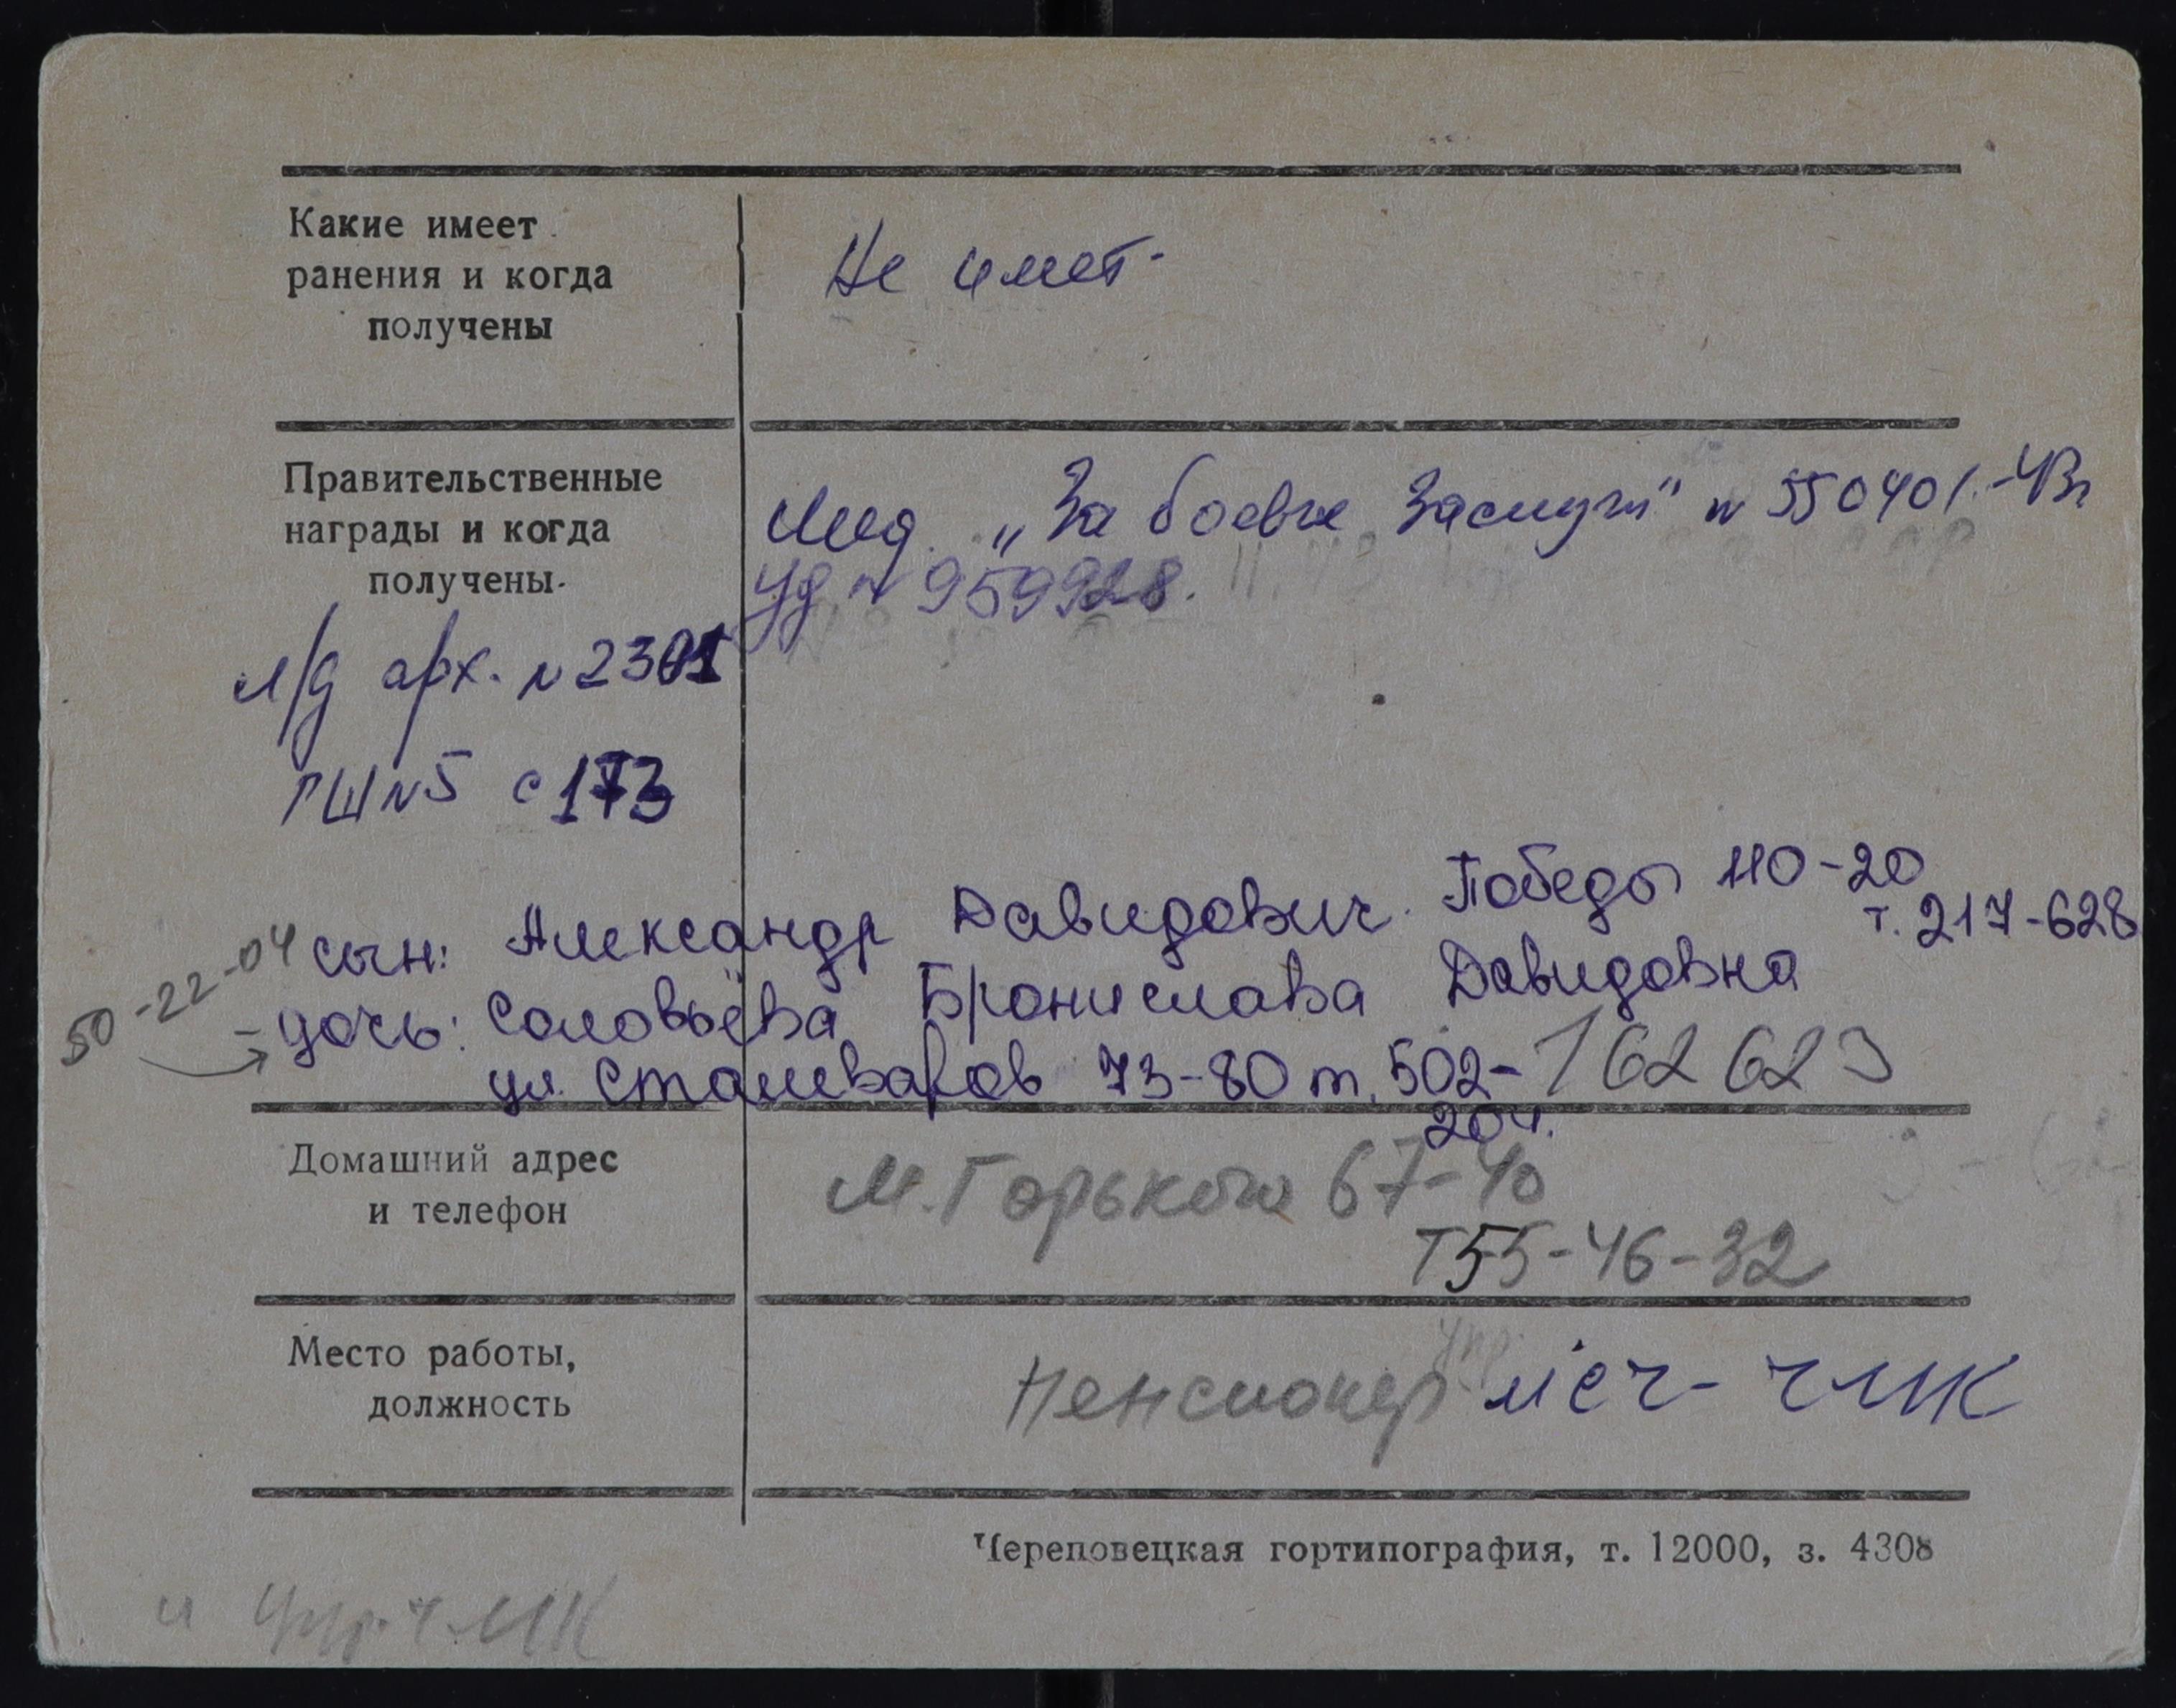 Какие имеет
ранения и когда
получены
Не имеет.
Правительственные
награды и когда
получены.
Мед. „За боевые заслуги" № 550401.-43г
Уд № 959928.
л/д арх. № 2301
ГШ №5 с 173
сын: Александр Давидович. Победы 110-20
т. 217-628
50-22-04
- дочь: Соловьёва Бронислава Давидовна
ул. Сталеваров 73-80 т. 502-
204.
162623
Домашний адрес
и телефон
М. Горького 67-40
Т 55-46-32
Место работы,
должность
Пенсионер мсч- чмк
Череповецкая гортипография, т. 12000, з. 4308
ЧМК